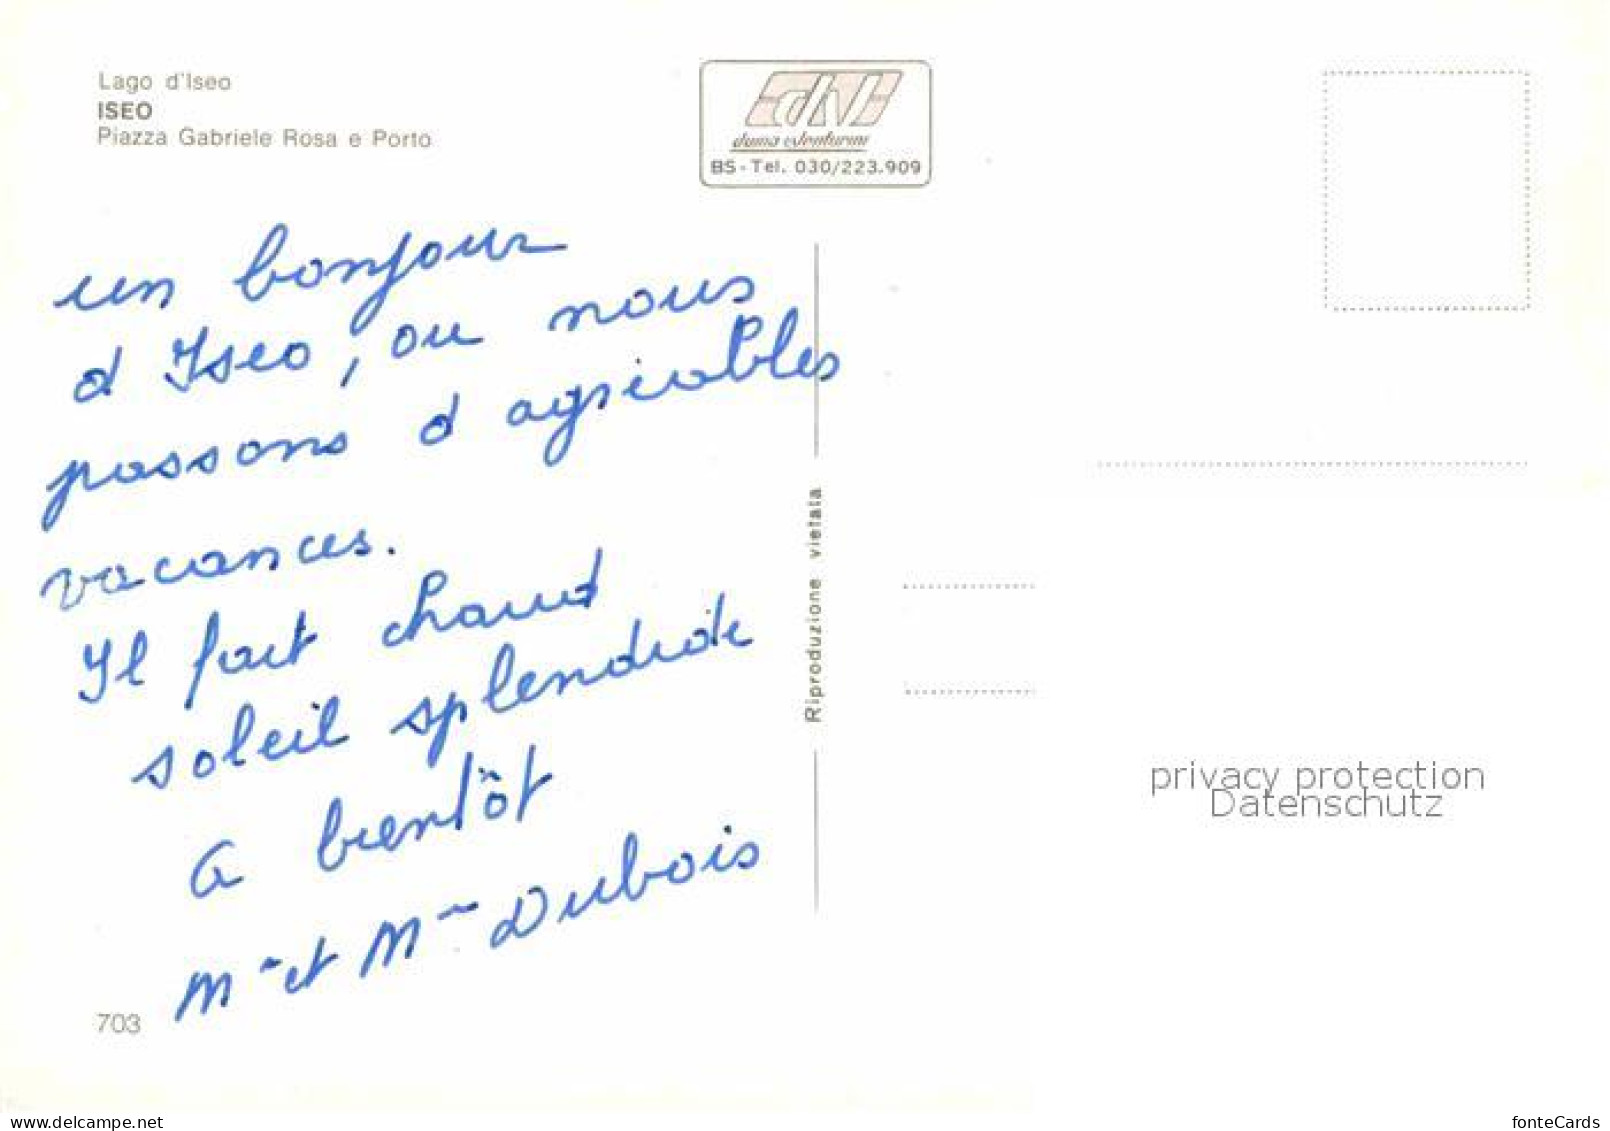 Lago d'Iseo
ISEO
Piazza Gabriele Rosa e Porto
BS - Tel. 030/223.909
un bonjour
d Iseo, ou nous
passons d agréables
vacances.
Il fait chaud
soleil splendide
a bientôt
Mr et Mme Dubois
703
Riproduzione vietata
privacy protection
Datenschutz
fonteCards
www.delcampe.net